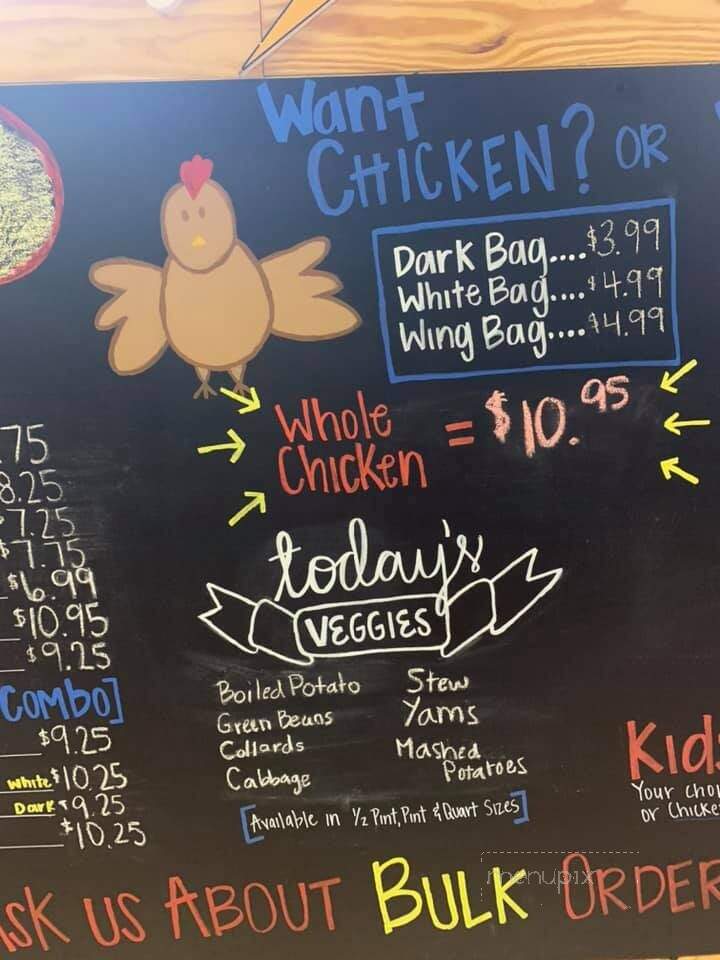 Want
CHICKEN? OR
Dark Bag....$3.99
White Bag....$4.99
Wing Bag....$4.99
Whole
Chicken = $10.95
.75
8.25
7.25
$7.75
$6.99
$10.95
$9.25
today's
VEGGIES
Boiled Potato
Green Beans
Collards
Cabbage
Stew
Yams
Mashed
Potatoes
[Available in ½ Pint, Pint & Quart Sizes]
Combo]
$9.25
White $10.25
Dark $9.25
$10.25
Kids
Your Choi
or Chicke
ASK US ABOUT BULK ORDER
menupix